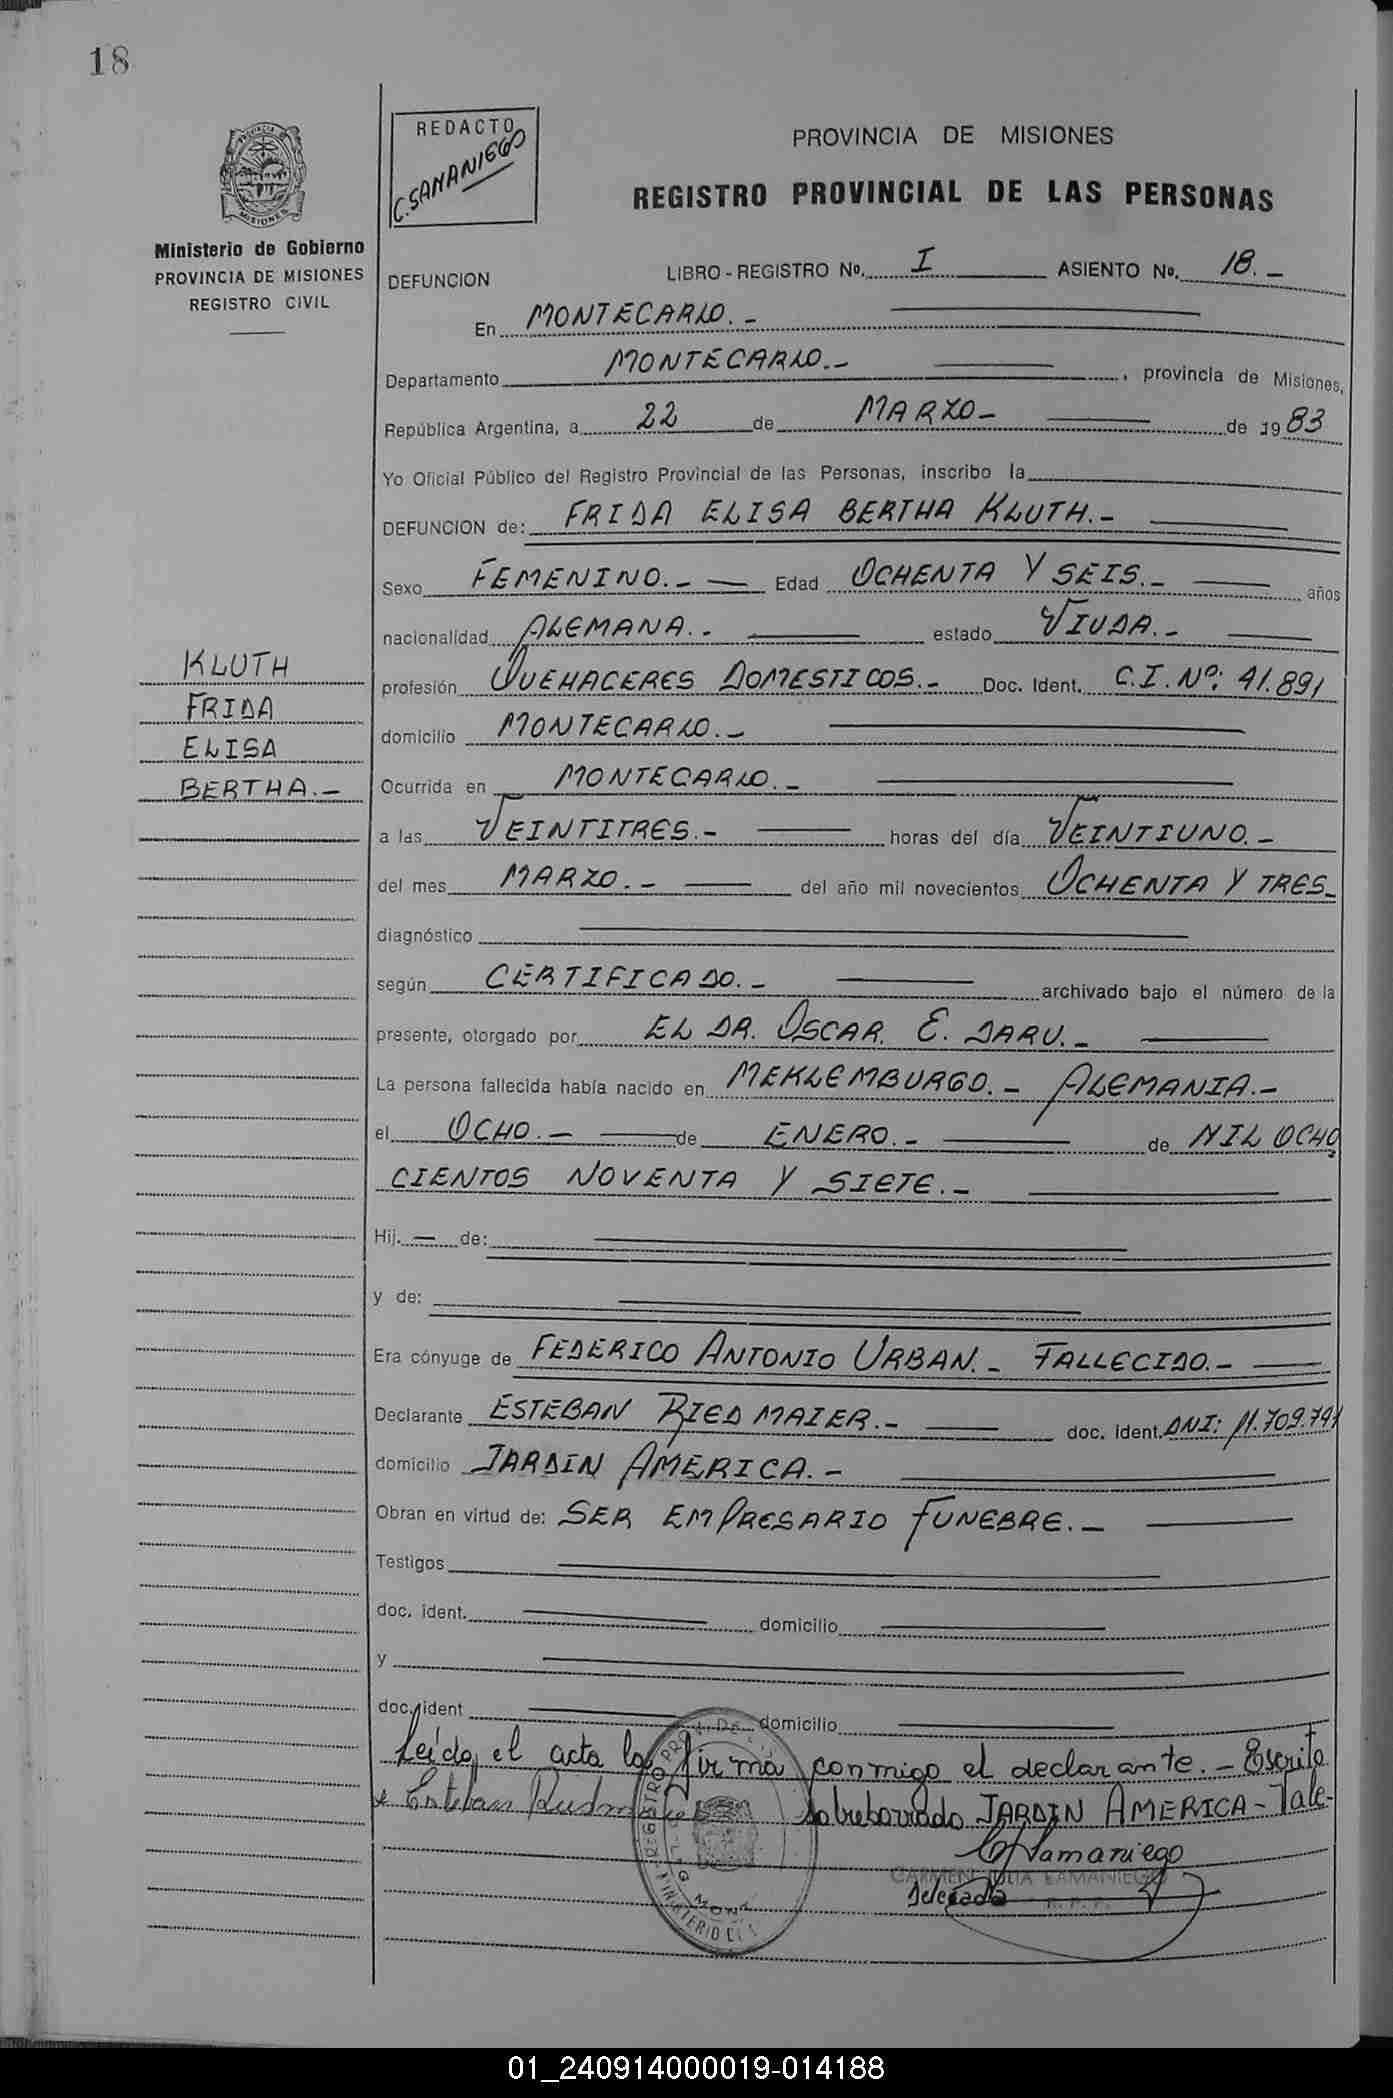 18
PROVINCIA DE
MISIONES
REDACTO
C. SAMANIEGO
PROVINCIA DE MISIONES
REGISTRO PROVINCIAL DE LAS PERSONAS
Ministerio de Gobierno
PROVINCIA DE MISIONES
REGISTRO CIVIL
DEFUNCION LIBRO - REGISTRO Nº. I ASIENTO Nº. 18. -
En MONTECARLO. -
Departamento MONTECARLO. - , provincia de Misiones,
República Argentina, a 22 de MARZO - de 1983
Yo Oficial Público del Registro Provincial de las Personas, inscribo la
DEFUNCION de: FRIDA ELISA BERTHA KLUTH. -
Sexo FEMENINO. - Edad OCHENTA Y SEIS. - años
nacionalidad ALEMANA. - estado VIUDA. -
KLUTH
FRIDA
ELISA
BERTHA. -
profesión QUEHACERES DOMESTICOS. - Doc. Ident. C.I. Nº: 41.891
domicilio MONTECARLO. -
Ocurrida en MONTECARLO. -
a las VEINTITRES. - horas del día VEINTIUNO. -
del mes MARZO. - del año mil novecientos OCHENTA Y TRES -
diagnóstico
según CERTIFICADO. - archivado bajo el número de la
presente, otorgado por EL DR. OSCAR. E. DARU. -
La persona fallecida había nacido en MEKLEMBURGO. - ALEMANIA. -
el OCHO. - de ENERO. - de MIL OCHO
CIENTOS NOVENTA Y SIETE. -
Hij. — de:
y de:
Era cónyuge de FEDERICO ANTONIO URBAN. - FALLECIDO. -
Declarante ESTEBAN RIEDMAIER. - doc. ident. DNI: 11.709.791
domicilio JARDIN AMERICA. -
Obran en virtud de: SER EMPRESARIO FUNEBRE. -
Testigos
doc. ident. domicilio
y
doc. ident domicilio
Leída el acta la firma conmigo el declarante. - Escrito
Esteban sobreborrado JARDIN AMERICA - Vale -
Samaniego
CARMEN JULIA SAMANIEGO
Delegada R. P. P.
01_240914000019-014188